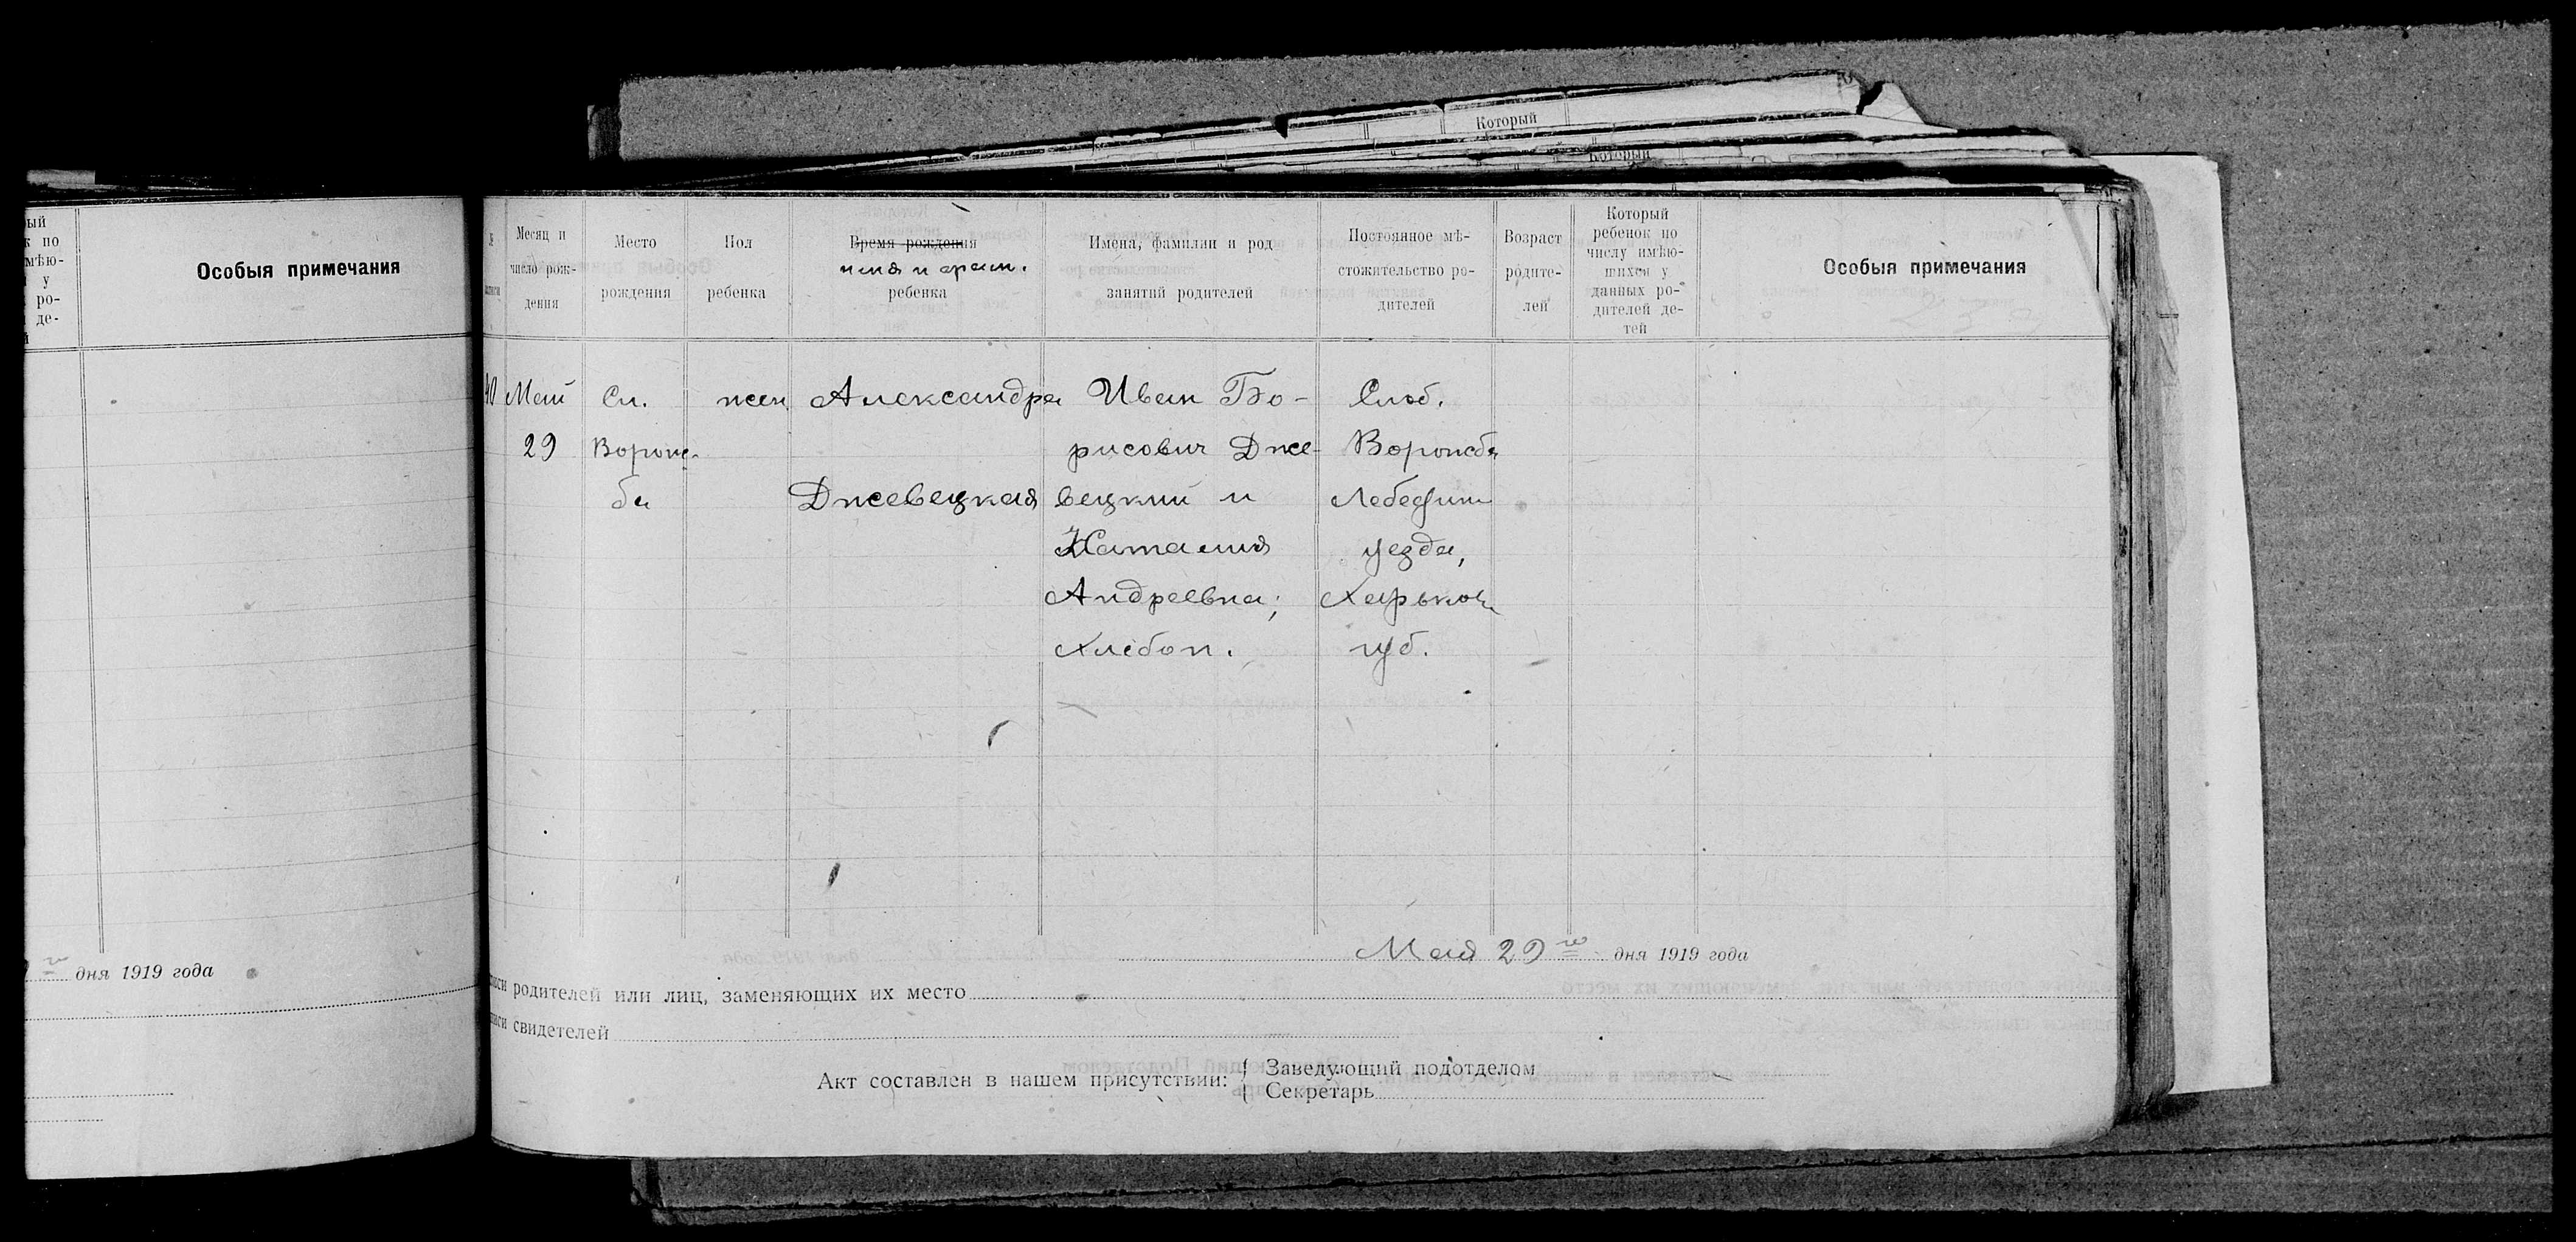 Который
Который
ый
к по
мѣю-
у
ро-
де-
Особыя примечания
дня 1919 года
№
Месяц и
число рож-
дения
Место
рождения
Пол
ребенка
Время рождения
имя и фам.
ребенка
Имена, фамилии и род
занятий родителей
Постоянное мѣ-
стожительство ро-
дителей
Возраст
родите-
лей
Который
ребенок по
числу имѣю-
щихся у
данных ро-
дителей де-
тей
Особыя примечания
Май
29
Сл.
Ворож-
ба
жен
Александра
Джевецкая
Иван Бо-
рисович Дже-
вецкий и
Наталия
Андреевна;
хлебоп.
Слоб.
Ворожба
Лебедин
уезда,
Харьков
губ.
Мая 29 го дня 1919 года
родителей или лиц, заменяющих их место
свидетелей
Акт составлен в нашем присутствии:
Заведующий подотделом
Секретарь